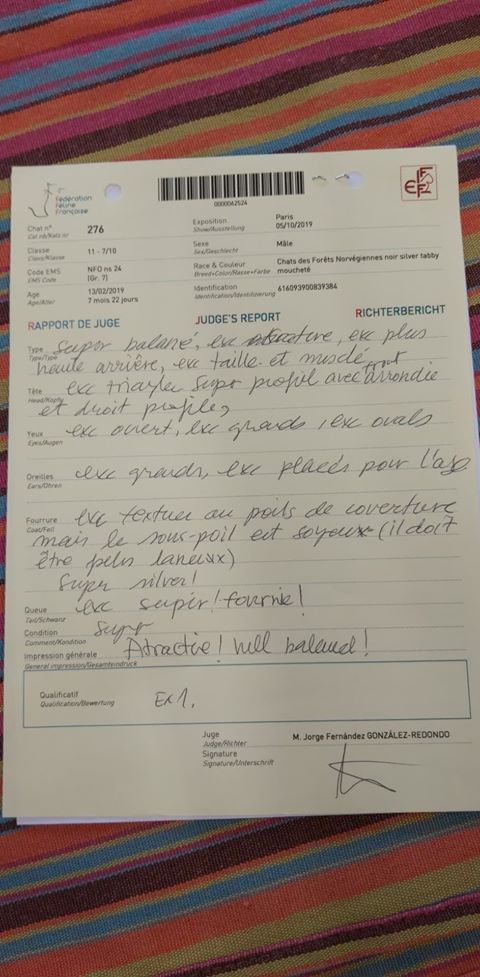 Fédération
Féline
Française
0000062524
FIFe
Chat n° 276
Cat nb/Katz.nr
Exposition Paris
Show/Ausstellung 05/10/2019
Classe 11 - 7/10
Class/Klasse
Sexe Mâle
Sex/Geschlecht
Code EMS NFO ns 24
EMS Code [Gr. 7]
Race & Couleur Chats des Forêts Norvégiennes noir silver tabby
Breed+Color/Rasse+Farbe moucheté
Age 13/02/2019
Age/Alter 7 mois 22 jours
Identification 616093900839384
Identification/Identifizierung
RAPPORT DE JUGE JUDGE'S REPORT RICHTERBERICHT
Type super balané, exc exc plus
Type/Type haute arrière, exc taille et musclé
Tête exc super profil avec front arrondie
Head/Kopf et droit profile,
Yeux exc ouvert, exc grands, exc ovals
Eyes/Augen
Oreilles exc grands, exc placés pour l'age
Ears/Ohren
Fourrure exc textuer au poils de coverture
Coat/Fell mais le sous-poil est soyeux (il doit
être plus laneux)
Super silver!
Queue exc super! fournie!
Tail/Schwanz
Condition super
Comment/Kondition
Impression générale Atractive! well balancd!
General impression/Gesamteindruck
Qualificatif Ex1.
Qualification/Bewertung
Juge M. Jorge Fernández GONZÁLEZ-REDONDO
Judge/Richter
Signature
Signature/Unterschrift